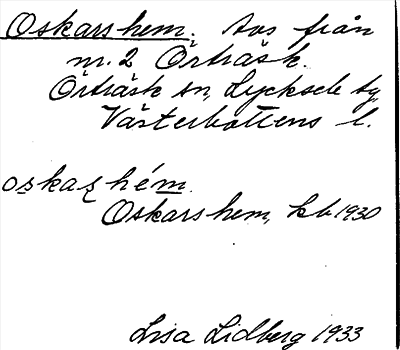 Oskarshem. Avs från
nr. 2 Örträsk.
Örträsk sn, Lycksele tg,
Västerbottens l.
oskaʂhém.
Oskarshem, kb 1930
Lisa Lidberg 1933